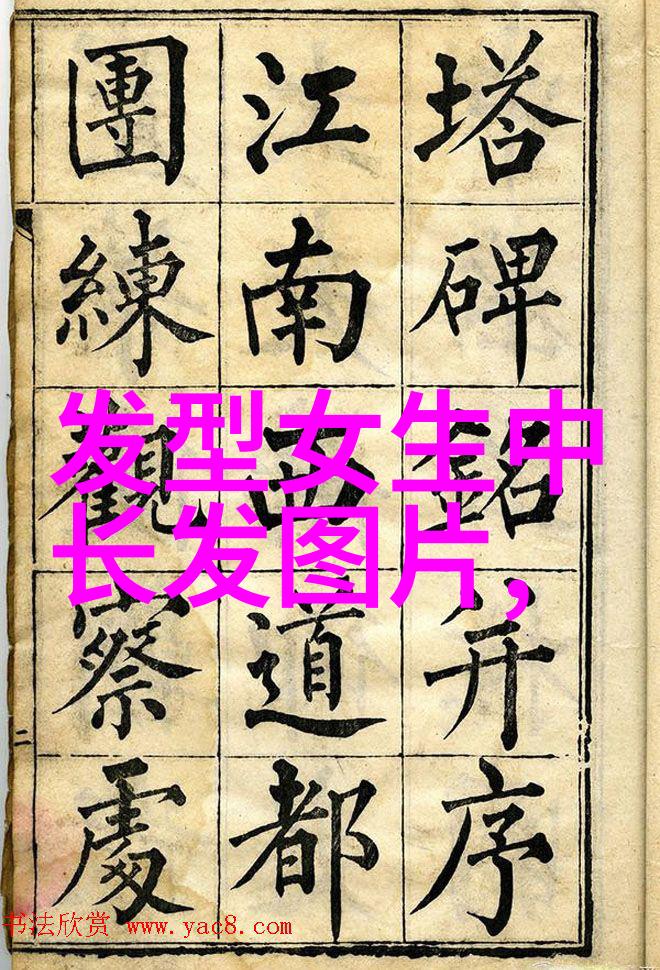 塔碑銘并序
江南西道都
團練觀察處
二
发型女生中
长发图片,
书法欣赏 www.yac8.com